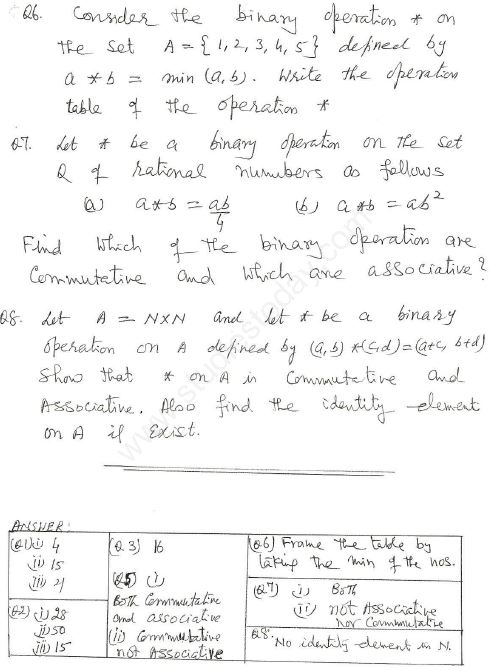 Q6. Consider the binary operation * on
the set A = {1, 2, 3, 4, 5} defined by
a * b = min (a, b). Write the operation
table of the operation *
Q7. Let * be a binary operation on the set
Q of rational numbers as follows
(a) a*b = ab/4 (b) a*b = ab²
Find which of the binary operation are
Commutative and which are associative?
Q8. Let A = N×N and let * be a binary
operation on A defined by (a,b) *(c,d)=(a+c, b+d)
Show that * on A is Commutative and
Associative. Also find the identity element
on A if exist.
www.studiestoday.com
ANSWER:
(Q1) (i) 4
(ii) 15
(iii) 21
(Q2) (i) 28
(ii) 50
(iii) 15
(Q.3) 16
(Q5) (i)
Both Commutative
and associative
(ii) Commutative
not Associative
(Q6) Frame the table by
taking the min of the nos.
(Q7) (i) Both
(ii) not Associative
Nor Commutative
Q8. No identity element in N.